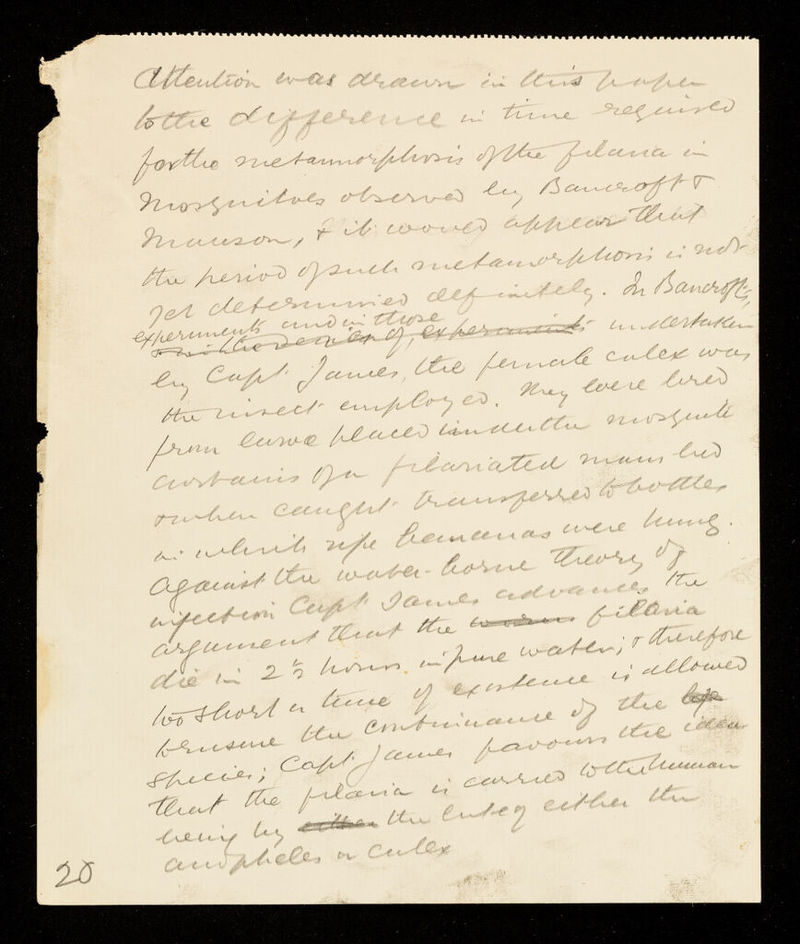 Attention was drawn in this paper
to the difference in time required
for the metamorphosis of the filaria in
Mosquitoes observed by Bancroft &
Manson, & it would appear that
the period of such metamorphosis is not
yet determined definitely. In Bancroft's
experiments and in those
of experiments undertaken
by Capt James, the female culex was
the insect employed. They were bred
from larvae placed under the mosquito
curtains of a filariated mans bed
& when caught transferred to bottles
in which ripe bananas were hung.
Against the water-borne theory of
infection Capt James advances the
argument that the worms filaria
die in 2½ hours in pure water; & therefore
too short a time of existence is allowed
to ensure the continuance of the life
species; Capt James favours the idea
that the filaria is carried to the human
being by either the bite of either the
anopheles or culex
20